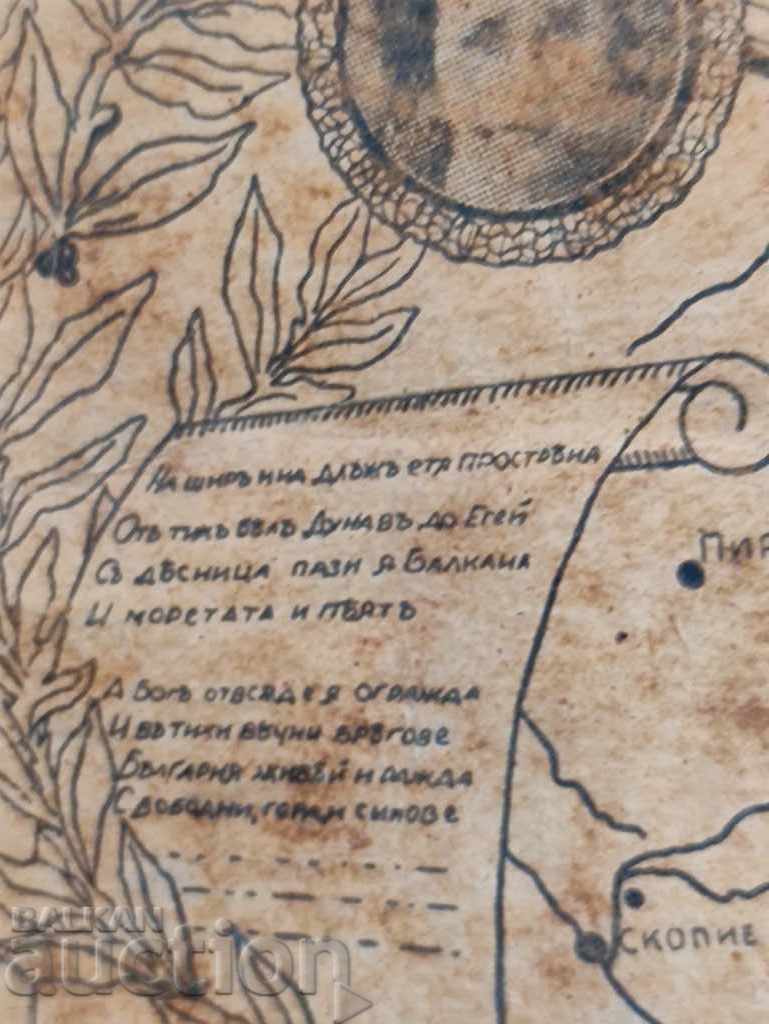 На ширъ и на длъжъ етя простръна
Отъ тихъ бѣлъ Дунавъ до Егей
Съ дѣсница пази я Балкана
И моретата и пѣятъ
А Богъ отвсяде я огражда
И вѣтики вѣчни врѣгове
България живѣй и ражда
Свободни, горди синове
Пир
Скопие
BALKAN
auction